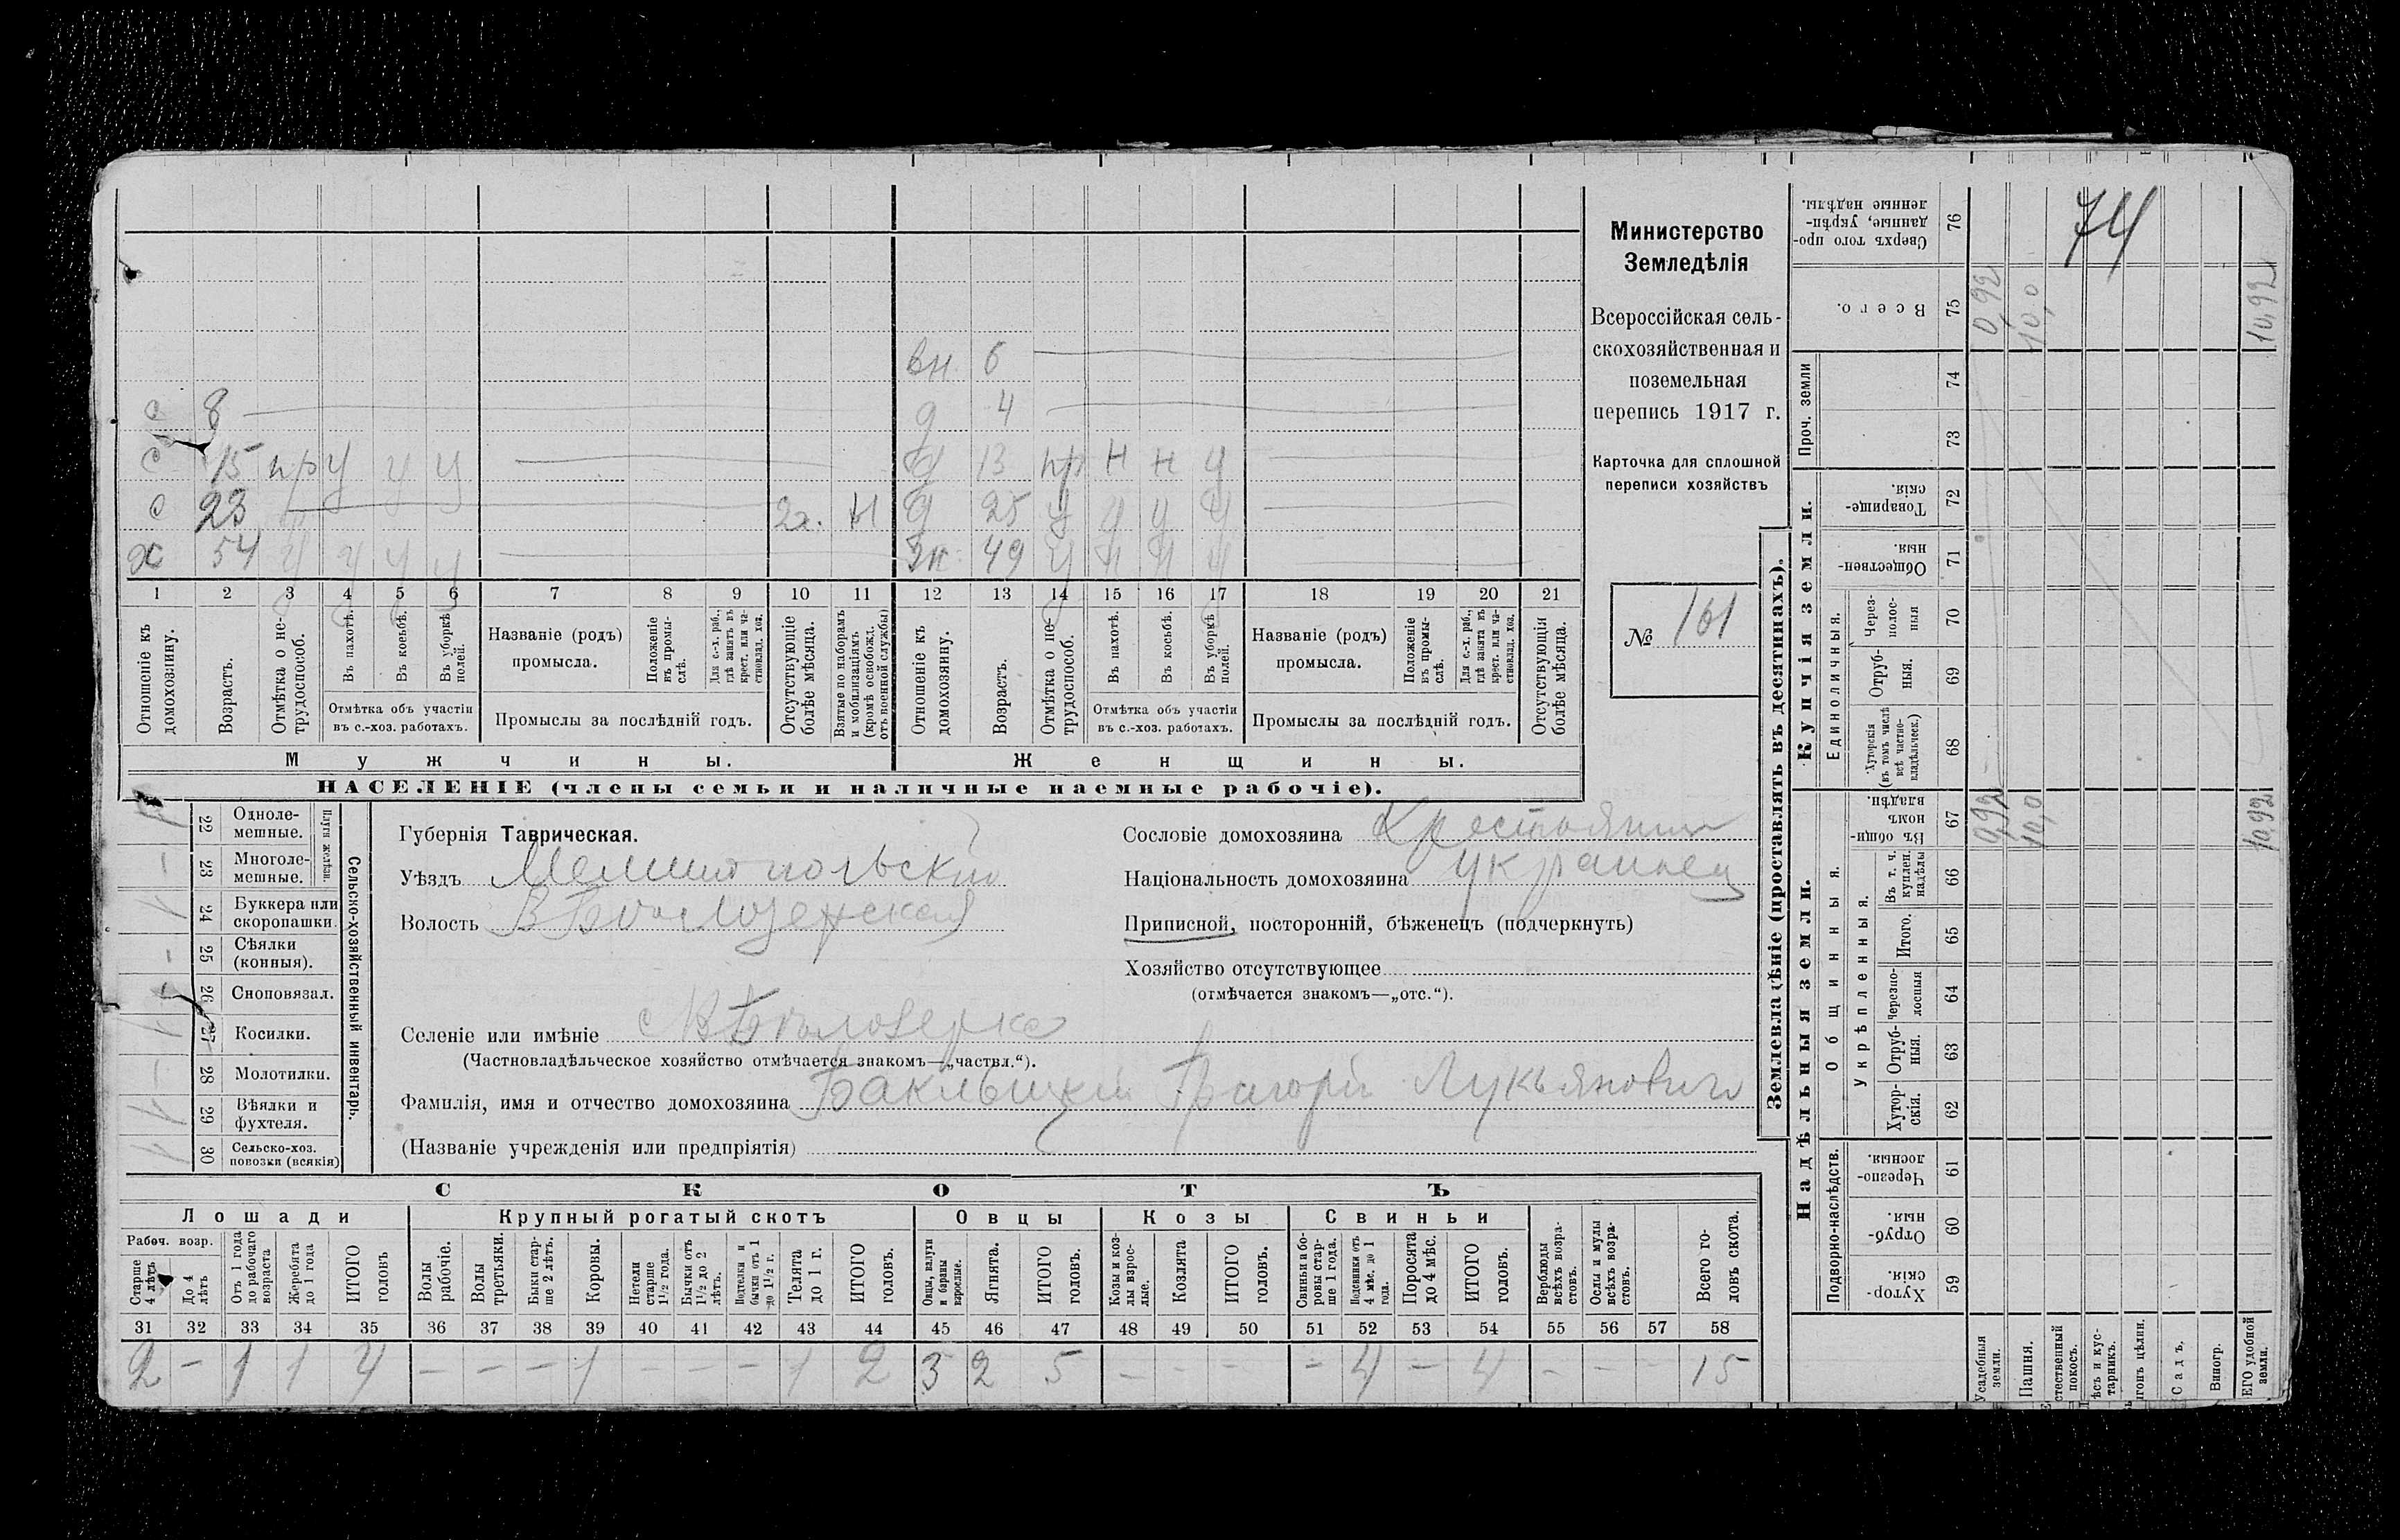 74
Министерство
Земледѣлія
Всероссійская сель-
скохозяйственная и
поземельная
перепись 1917 г.
Карточка для сплошной
переписи хозяйствъ
№ 161
вн. 6
с 8
д 4
с 15 пр у у у
д 13 пр н н у
с 23 2г. Н
д 25 у у у у
х 54 у у у у
жн. 49 у н н у
1 2 3 4 5 6 7 8 9 10 11 12 13 14 15 16 17 18 19 20 21
Отношеніе къ домохозяину.
Возрастъ.
Отмѣтка о не-трудоспособ.
Въ пахотѣ.
Въ косьбѣ.
Въ уборкѣ полей.
Отмѣтка объ участіи
въ с.-хоз. работахъ.
Названіе (родъ)
промысла.
Положеніе въ промы-слѣ.
Для с.-х. раб., гдѣ занятъ въ крест. или ча-стновлад. хоз.
Промыслы за послѣдній годъ.
Отсутствующіе болѣе мѣсяца.
Взятые по наборамъ и мобилизаціямъ (кромѣ освобожд. отъ военной службы)
Отношеніе къ домохозяину.
Возрастъ.
Отмѣтка о не-трудоспособ.
Въ пахотѣ.
Въ косьбѣ.
Въ уборкѣ полей.
Отмѣтка объ участіи
въ с.-хоз. работахъ.
Названіе (родъ)
промысла.
Положеніе въ промы-слѣ.
Для с.-х. раб., гдѣ занята въ крест. или ча-стновлад. хоз.
Промыслы за послѣдній годъ.
Отсутствующія болѣе мѣсяца.
Мужчины.
Женщины.
НАСЕЛЕНІЕ (члены семьи и наличные наемные рабочіе).
22 Одноле-мешные.
23 Многоле-мешные.
Плуги желѣзн.
24 Буккера или скоропашки.
25 Сѣялки (конныя).
26 Сноповязал.
27 Косилки.
28 Молотилки.
29 Вѣялки и фухтеля.
30 Сельско-хоз. повозки (всякія)
Сельско-хозяйственный инвентарь.
Губернія Таврическая.
Уѣздъ Мелитопольскій
Волость В Бѣлозерская
Селеніе или имѣніе с В Бѣлозерка
(Частновладѣльческое хозяйство отмѣчается знакомъ—„частвл.“).
Фамилія, имя и отчество домохозяина Григорій Лукьяновичъ
(Названіе учрежденія или предпріятія)
Сословіе домохозяина Крестьянин
Національность домохозяина украинец
Приписной, посторонній, бѣженецъ (подчеркнуть)
Хозяйство отсутствующее
(отмѣчается знакомъ—„отс.“).
СКОТЪ
Лошади
Крупный рогатый скотъ
Овцы
Козы
Свиньи
Рабоч. возр.
Старше 4 лѣтъ
До 4 лѣтъ
Отъ 1 года до рабочаго возраста
Жеребята до 1 года
ИТОГО головъ
Волы рабочіе.
Волы третьяки.
Быки стар-ше 2 лѣтъ.
Коровы.
Нетели старше 1½ года.
Бычки отъ 1½ до 2 лѣтъ.
Подтелки и бычки отъ 1 до 1½ г.
Телята до 1 г.
ИТОГО головъ.
Овцы, валухи и бараны взрослые.
Ягнята.
ИТОГО головъ.
Козы и коз-лы взрос-лые.
Козлята
ИТОГО головъ.
Свиньи и бо-ровы стар-ше 1 года.
Подсвинки отъ 4 мѣс. до 1 года.
Поросята до 4 мѣс.
ИТОГО головъ.
Верблюды всѣхъ возра-стовъ.
Ослы и мулы всѣхъ возра-стовъ.
Всего го-ловъ скота.
31 32 33 34 35 36 37 38 39 40 41 42 43 44 45 46 47 48 49 50 51 52 53 54 55 56 57 58
2 - 1 1 4 - - - 1 - - - 1 2 3 2 5 - - - - 4 - 4 - - - 15
Землевладѣніе (проставлять въ десятинахъ).
Надѣльныя земли.
Купчія земли.
Проч. земли
Подворно-наслѣдств.
Общинныя.
Укрѣпленныя.
Единоличныя.
Сверхъ того про-данные, укрѣп-ленные надѣлы. 76
Всего. 75 0,92 10,0 10,92
74
73
Товарище-скія. 72
Обществен-ныя. 71
Через-полос-ныя 70
Отруб-ныя. 69
Хуторскія (въ томъ числѣ всѣ частно-владѣльческ.) 68
Въ общин-номъ владѣн. 67 0,92 10,0 10,92
Въ т. ч. куплен. надѣлы 66
Итого. 65
Черезпо-лосныя 64
Отруб-ныя. 63
Хутор-скія. 62
Черезпо-лосныя. 61
Отруб-ныя. 60
Хутор-скія. 59
Усадебныя земли.
Пашня.
Естественный покосъ.
Лѣсъ и кус-тарникъ.
Садъ.
Виногр.
земли.